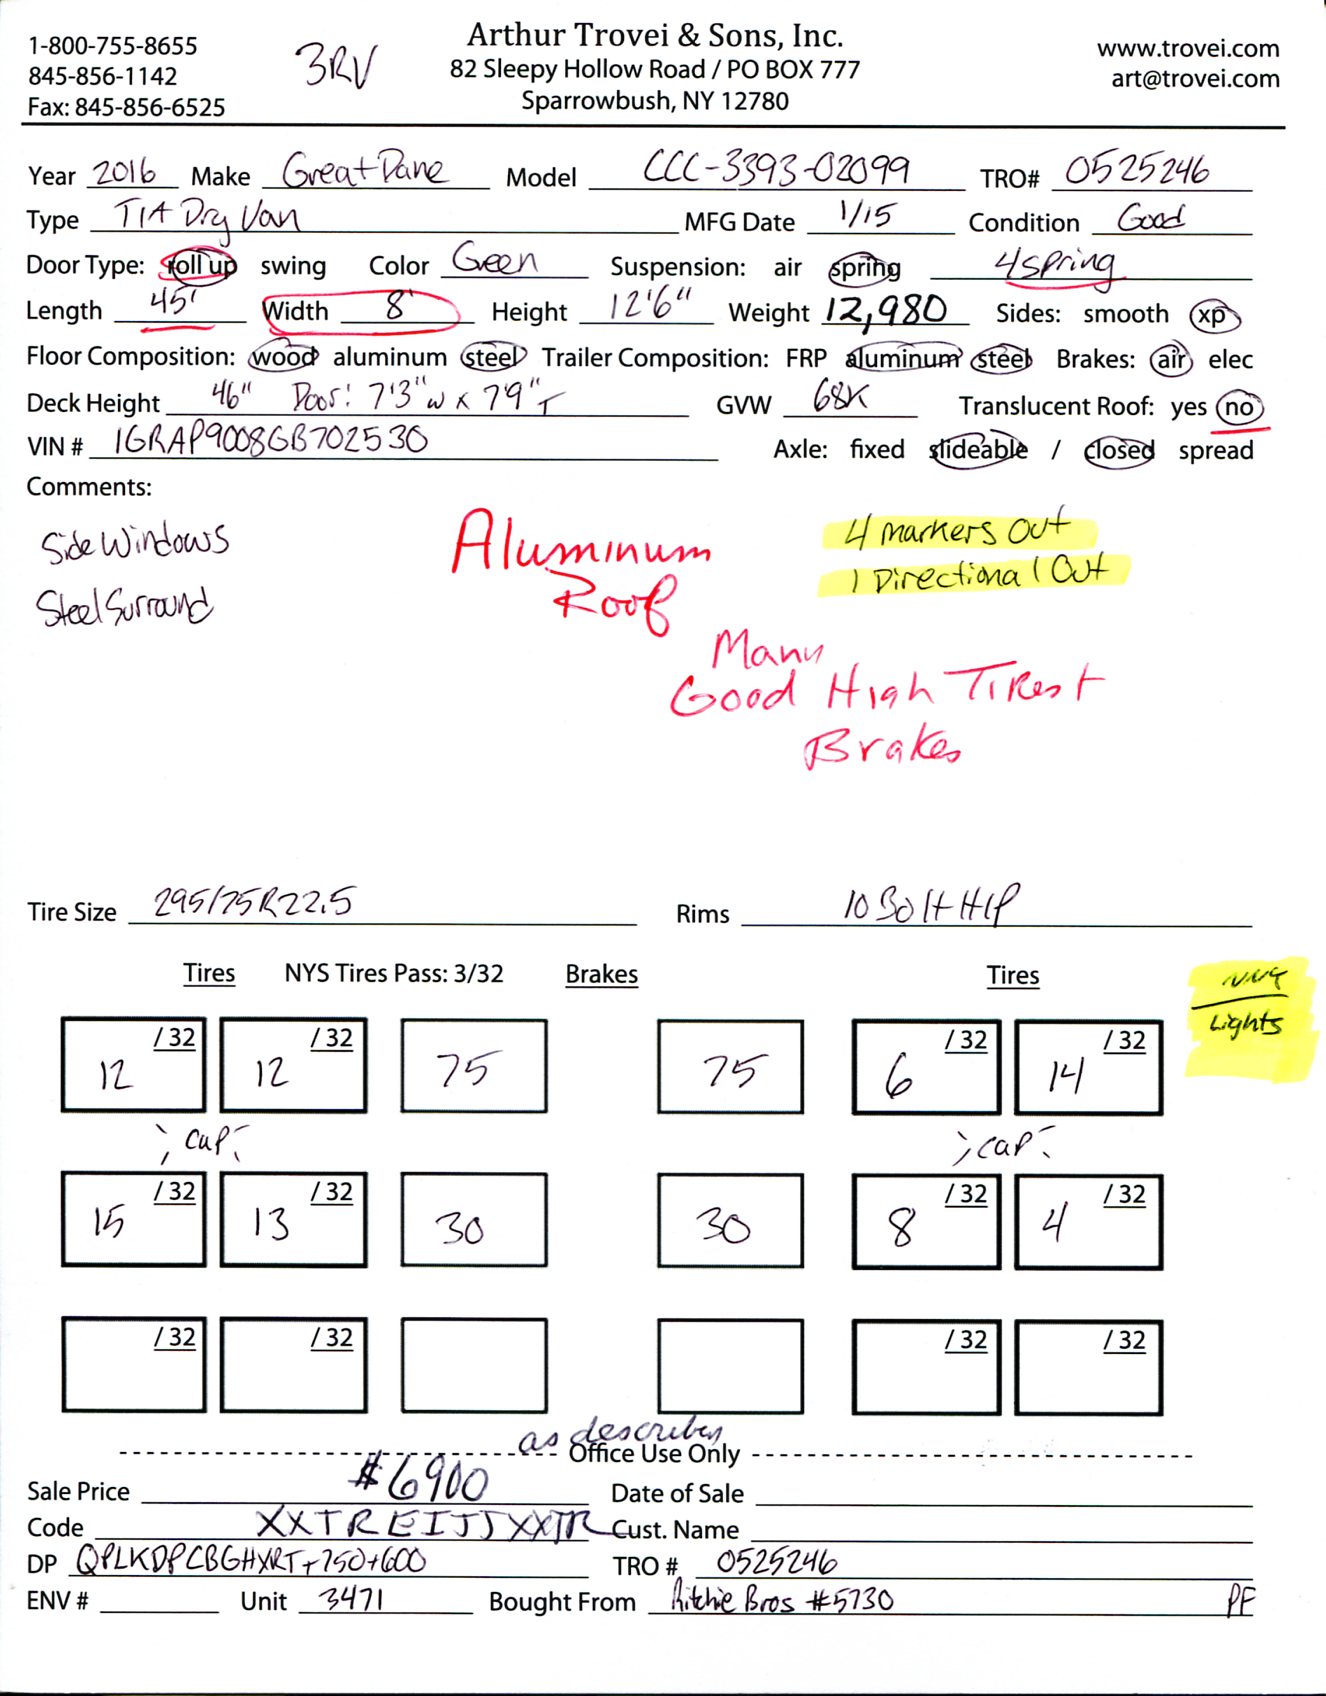 1-800-755-8655
845-856-1142
Fax: 845-856-6525
3RV
Arthur Trovei & Sons, Inc.
82 Sleepy Hollow Road / PO BOX 777
Sparrowbush, NY 12780
www.trovei.com
art@trovei.com
Year 2016 Make Great Dane Model CCC-3393-02099 TRO# 0525246
Type T/A Dry Van MFG Date 1/15 Condition Good
Door Type: roll up swing Color Green Suspension: air spring 4 spring
Length 45' Width 8' Height 12'6" Weight 12,980 Sides: smooth xp
Floor Composition: wood aluminum steel Trailer Composition: FRP aluminum steel Brakes: air elec
Deck Height 46" Door: 7'3"w x 7'9"T GVW 68K Translucent Roof: yes no
VIN # 1GRAP9008GB702530 Axle: fixed slideable / closed spread
Comments:
Side Windows
Steel Surround
Aluminum
Roof
4 markers out
1 Directional Out
Many
Good High Tires +
Brakes
Tire Size 295/75R22.5 Rims 10 Bolt H/P
Tires NYS Tires Pass: 3/32 Brakes Tires
Lights
12 /32 12 /32 75 75 6 /32 14 /32
cap cap
15 /32 13 /32 30 30 8 /32 4 /32
/32 /32 /32 /32
as describes
Office Use Only
Sale Price $6900 Date of Sale
Code XXTREIJJXXTR Cust. Name
DP QPLKDPCBGHXRT+750+600 TRO # 0525246
ENV # Unit 3471 Bought From Ritchie Bros #5730 PF